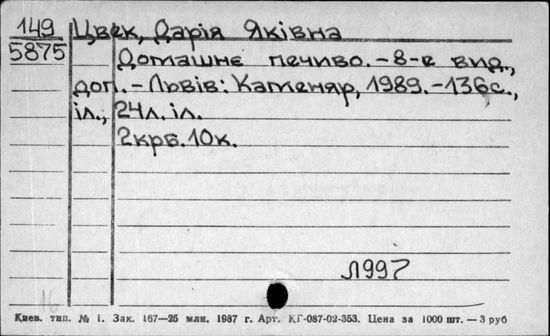 149
5875
Цвек, Дарія Яківна
Домашнє печиво. – 8-е вид.,
доп. – Львів: Каменяр, 1989. – 136с.,
іл., 24л. іл.
2крб. 10к.
Л997
16
Киев. тип. № 1. Зак. 167—25 млн. 1987 г. Арт. КГ-087-02-353. Цена за 1000 шт. — 3 руб